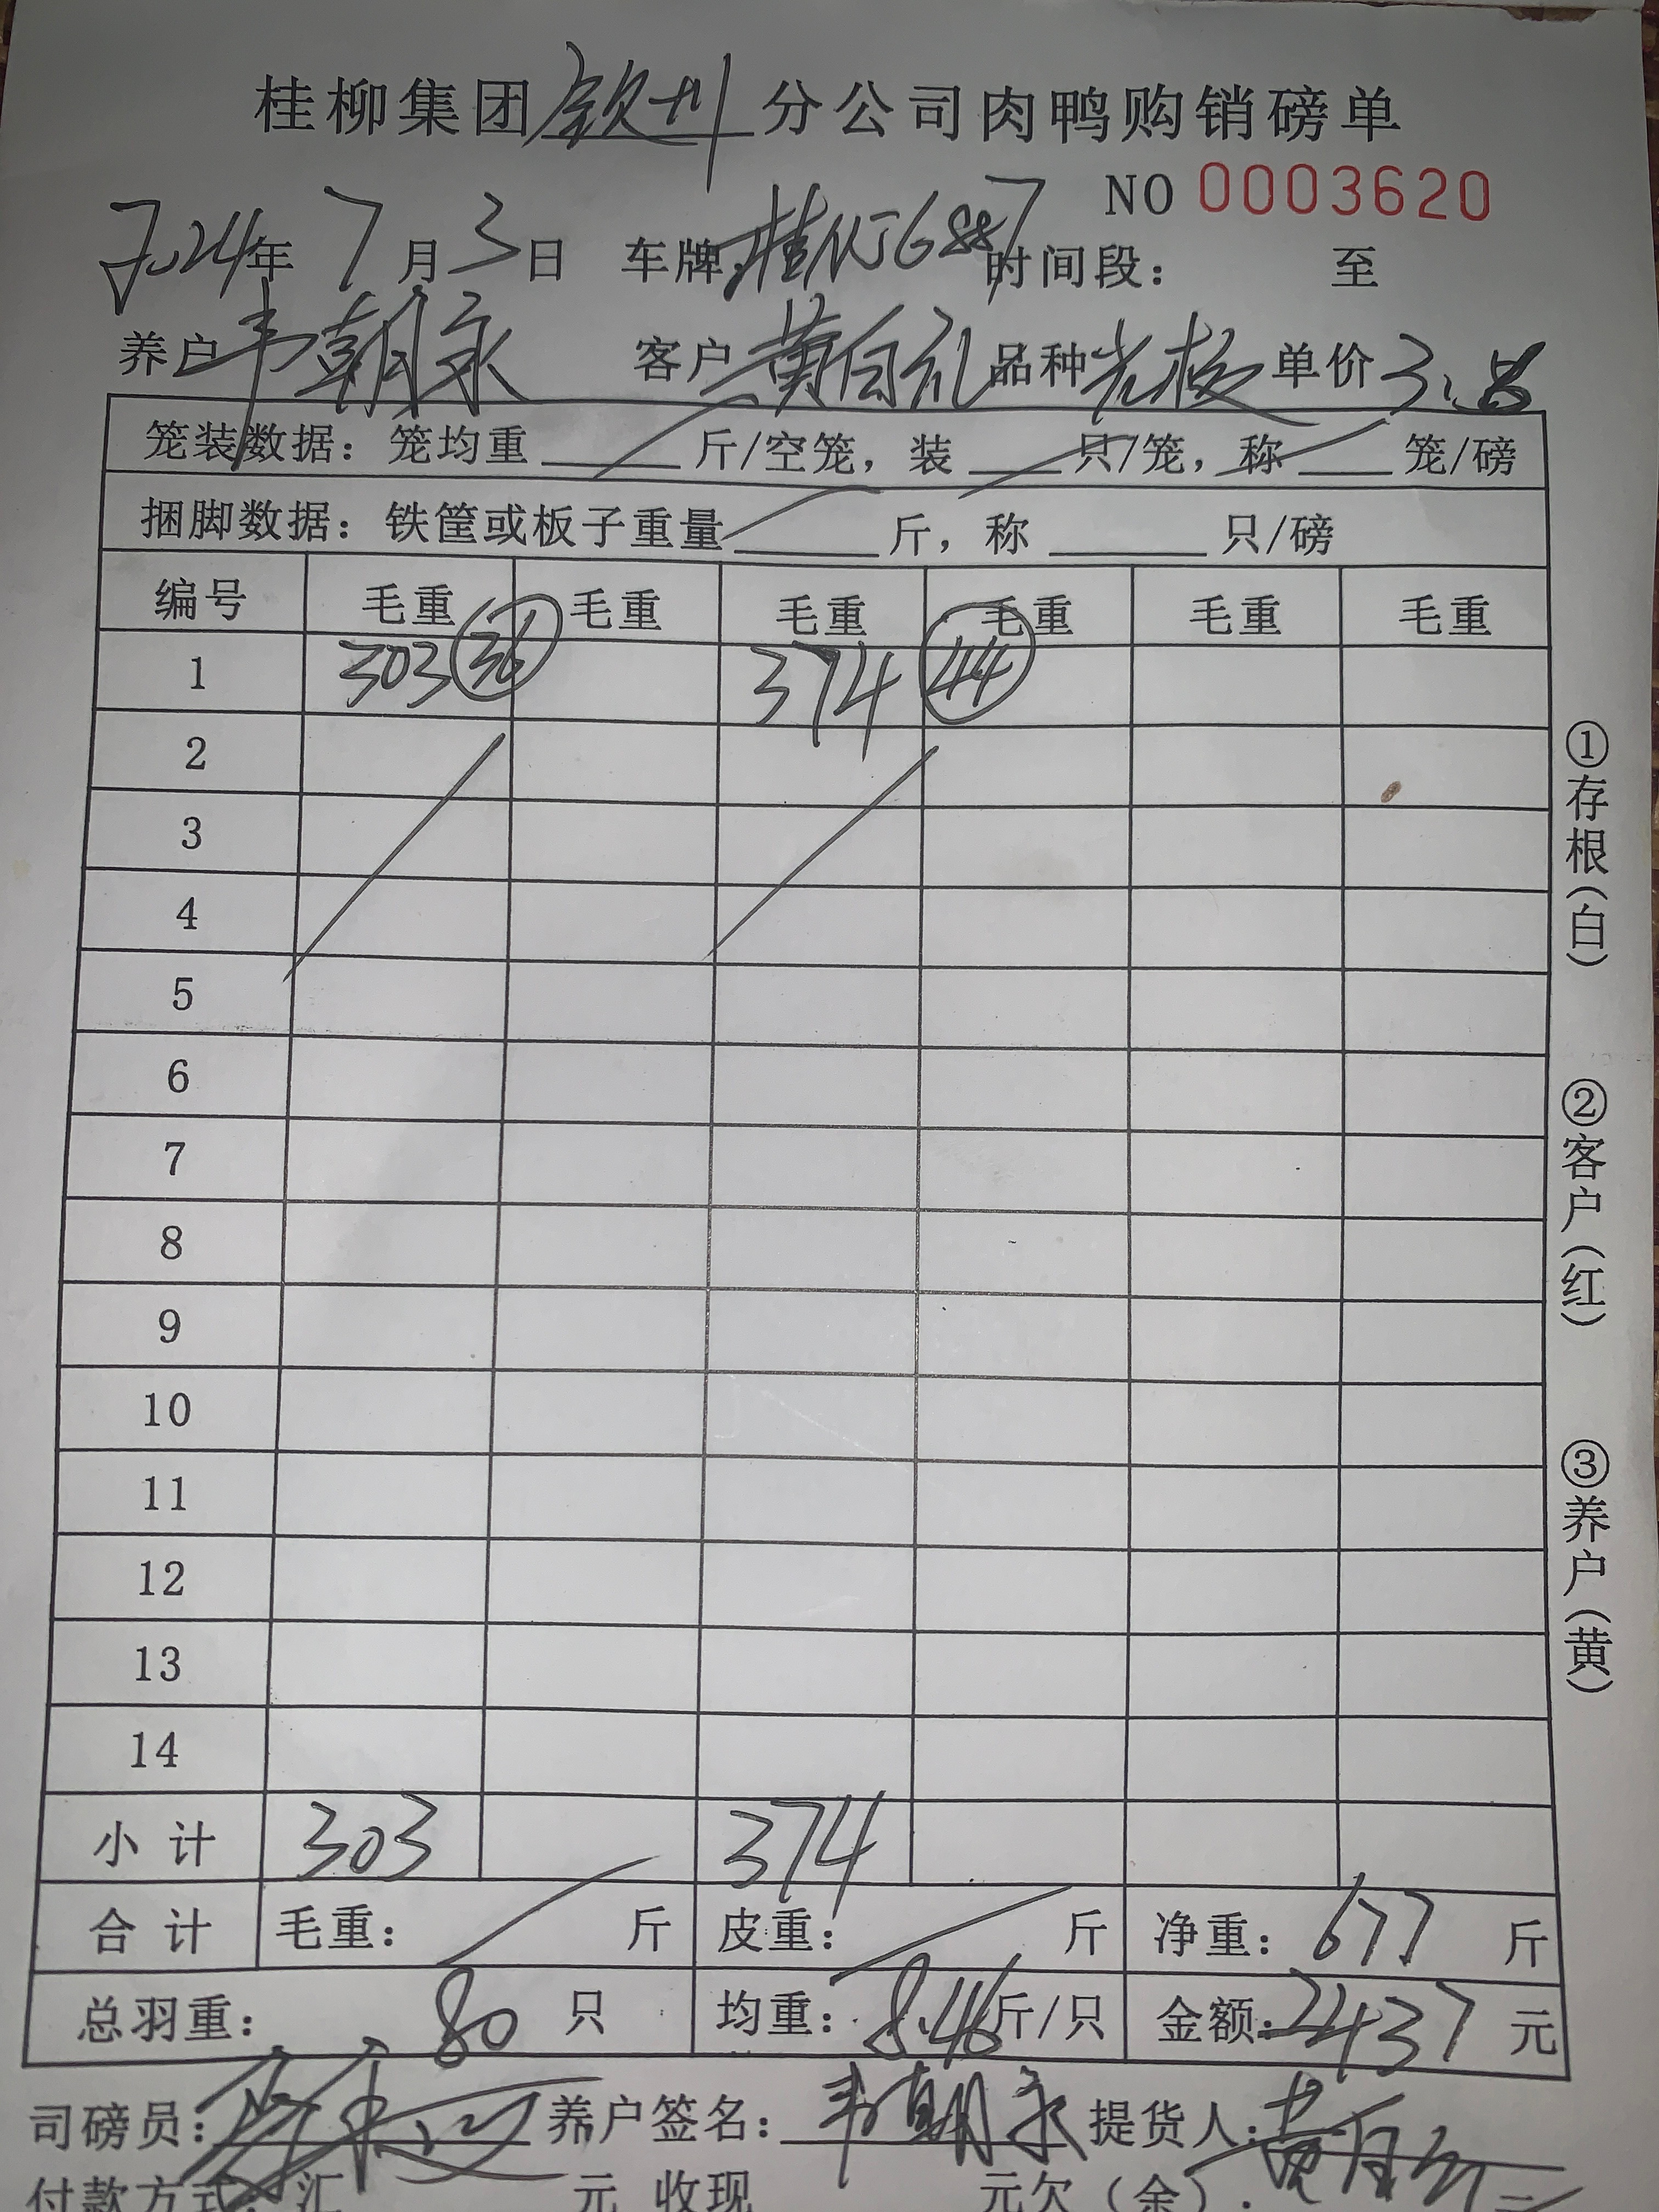 桂柳集团钦州分公司肉鸭购销磅单
NO 0003620
2024年7月3日 车牌:桂NJ6887 时间段: 至
养户韦朝永 客户黄自礼 品种 单价3.
笼装数据: 笼均重 斤/空笼, 装 只/笼, 称 笼/磅
捆脚数据: 铁筐或板子重量 斤, 称 只/磅
编号 毛重 毛重 毛重 毛重 毛重 毛重
1 303 36 374 44
2
3
4
5
6
7
8
9
10
11
12
13
14
小计 303 374
合计 毛重: 斤 皮重: 斤 净重: 677 斤
总羽重: 80 只 均重: 8.46斤/只 金额:2437元
司磅员: 养户签名: 韦朝永 提货人:
付款方式: 汇 元 收现 元欠(余): 元
①存根(白)
②客户(红)
③养户(黄)